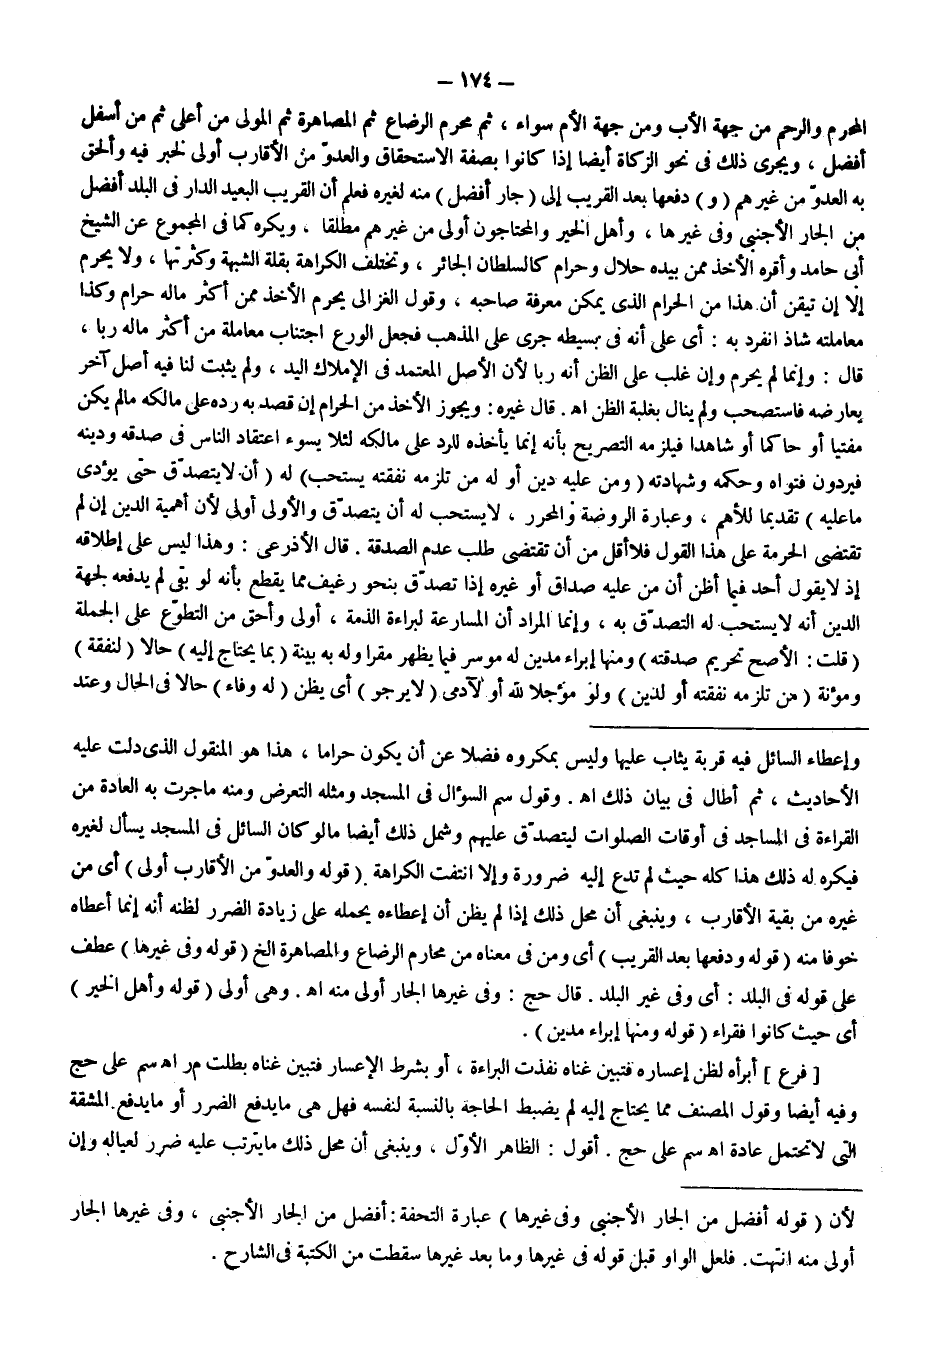 – ١٧٤ –
المحرم والرحم من جهة الأب ومن جهة الأم سواء ، ثم محرم الرضاع ثم المصاهرة ثم المولى من أعلى ثم من أسفل
أفضل ، ويجرى ذلك فى نحو الزكاة أيضا إذا كانوا بصفة الاستحقاق والعدوّ من الأقارب أولى لخبر فيه وألحق
به العدوّ من غيرهم ( و ) دفعها بعد القريب إلى ( جار أفضل ) منه لغيره فعلم أن القريب البعيد الدار فى البلد أفضل
من الجار الأجنبي وفى غيرها ، وأهل الخير والمحتاجون أولى من غيرهم مطلقا ، ويكره كما فى المجموع عن الشيخ
أبى حامد وأقره الأخذ ممن بيده حلال وحرام كالسلطان الجائر ، وتختلف الكراهة بقلة الشبهة وكثرتها ، ولا يحرم
إلا إن تيقن أن هذا من الحرام الذى يمكن معرفة صاحبه ، وقول الغزالى يحرم الأخذ ممن أكثر ماله حرام وكذا
معاملته شاذ انفرد به : أى على أنه فى بسيطه جرى على المذهب فجعل الورع اجتناب معاملة من أكثر ماله ربا ،
قال : وإنما لم يحرم وإن غلب على الظن أنه ربا لأن الأصل المعتمد فى الإملاك اليد ، ولم يثبت لنا فيه أصل آخر
يعارضه فاستصحب ولم ينال بغلبة الظن اه . قال غيره : ويجوز الأخذ من الحرام إن قصد به رده على مالكه مالم يكن
مفتيا أو حاكما أو شاهدا فيلزمه التصريح بأنه إنما يأخذه للرد على مالكه لئلا يسوء اعتقاد الناس فى صدقه ودينه
فيردون فتواه وحكمه وشهادته ( ومن عليه دين أو له من تلزمه نفقته يستحب ) له ( أن لا يتصدّق حتى يؤدى
ماعليه ) تقديما للأهم ، وعبارة الروضة والمحرر ، لايستحب له أن يتصدّق والأولى أولى لأن أهمية الدين إن لم
تقتضى الحرمة على هذا القول فلا أقل من أن تقتضى طلب عدم الصدقة . قال الأذرعى : وهذا ليس على إطلاقه
إذ لايقول أحد فيما أظن أن من عليه صداق أو غيره إذا تصدّق بنحو رغيف مما يقطع بأنه لو بقى لم يدفعه لجهة
الدين أنه لايستحب له التصدّق به ، وإنما المراد أن المسارعة لبراءة الذمة ، أولى وأحق من التطوّع على الجملة
( قلت : الأصح تحريم صدقته ) ومنها إبراء مدين له موسر فيما يظهر مقرا وله به بينة ( بما يحتاج إليه ) حالا ( لنفقة )
ومؤنة ( من تلزمه نفقته أو لدين ) ولو مؤجلا لله أو لآدمى ( لايرجو ) أى يظن ( له وفاء ) حالا فى الحال وعند
وإعطاء السائل فيه قربة يثاب عليها وليس بمكروه فضلا عن أن يكون حراما ، هذا هو المنقول الذى دلت عليه
الأحاديث ، ثم أطال فى بيان ذلك اه . وقول سم السؤال فى المسجد ومثله التعرض ومنه ماجرت به العادة من
القراءة فى المساجد فى أوقات الصلوات ليتصدّق عليهم وشمل ذلك أيضا مالو كان السائل فى المسجد يسأل لغيره
فيكره له ذلك هذا كله حيث لم تدع إليه ضرورة وإلا انتفت الكراهة . ( قوله والعدوّ من الأقارب أولى ) أى من
غيره من بقية الأقارب ، وينبغى أن محل ذلك إذا لم يظن أن إعطاءه يحمله على زيادة الضرر لظنه أنه إنما أعطاه
خوفا منه ( قوله ودفعها بعد القريب ) أى ومن فى معناه من محارم الرضاع والمصاهرة الخ ( قوله وفى غيرها ) عطف
على قوله فى البلد : أى وفى غير البلد . قال حج : وفى غيرها الجار أولى منه اه . وهى أولى ( قوله وأهل الخير )
أى حيث كانوا فقراء ( قوله ومنها إبراء مدين ) .
[ فرع ] أبرأه لظن إعساره فتبين غناه نفذت البراءة ، أو بشرط الإعسار فتبين غناه بطلت مر اه سم على حج
وفيه أيضا وقول المصنف مما يحتاج إليه لم يضبط الحاجة بالنسبة لنفسه فهل هى مايدفع الضرر أو مايدفع المشقة
التى لا تحتمل عادة اه سم على حج . أقول : الظاهر الأوّل ، وينبغى أن محل ذلك مايترتب عليه ضرر لعياله وإن
لأن ( قوله أفضل من الجار الأجنبي وفى غيرها ) عبارة التحفة : أفضل من الجار الأجنبي ، وفى غيرها الجار
أولى منه انتهت . فلعل الواو قبل قوله فى غيرها وما بعد غيرها سقطت من الكتبة فى الشارح .